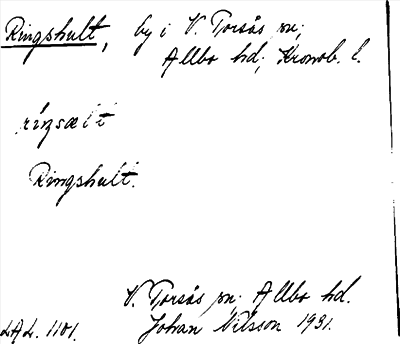 Ringshult, by i V. Torsås sn;
Allbo hd; Kronob. l.
ríŋsælt
Ringshult.
V. Torsås sn. Allbo hd.
LAL. 1101. Johan Nilsson 1931.